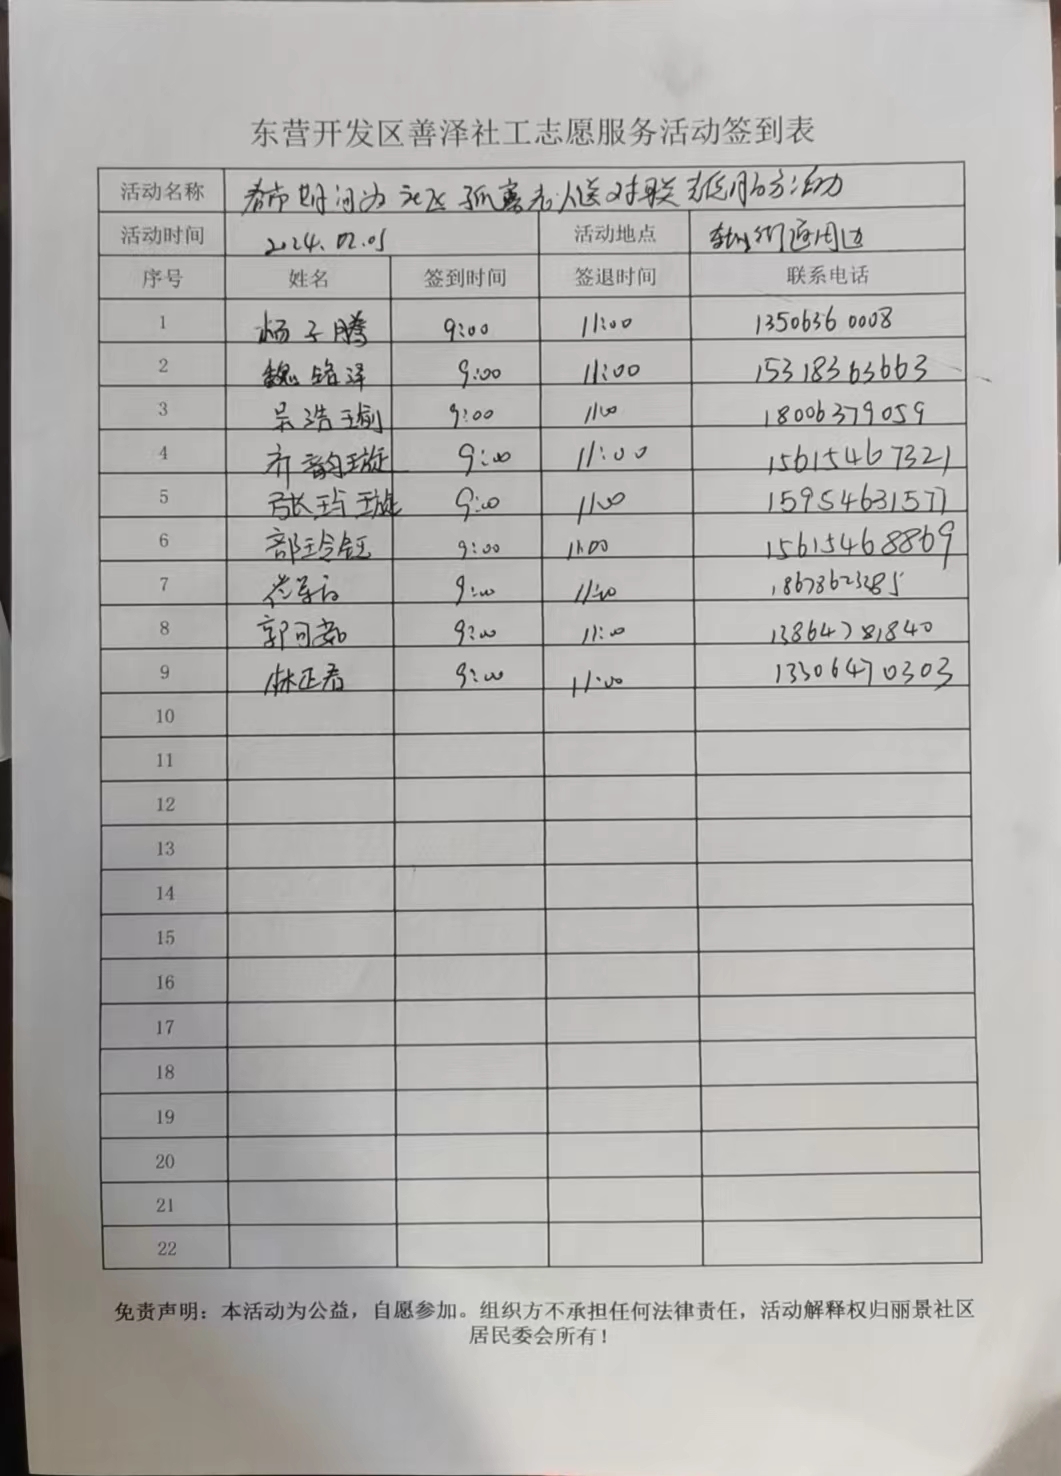 东营开发区善泽社工志愿服务活动签到表
活动名称 春节期间为社区孤寡老人送对联 活动
活动时间 2024.02.05 活动地点 街道周边
序号 姓名 签到时间 签退时间 联系电话
1 杨子腾 9:00 11:00 13506360008
2 魏铭泽 9:00 11:00 15318363663
3 吴浩瑜 9:00 11:00 18006379059
4 齐韵璇 9:00 11:00 15615467321
5 张玙璇 9:00 11:00 15954631577
6 部玲钰 9:00 11:00 15615468869
7 9:00 11:00 18678623285
8 郭可茹 9:00 11:00 13864781840
9 林正君 9:00 11:00 13306470303
10
11
12
13
14
15
16
17
18
19
20
21
22
免责声明：本活动为公益，自愿参加。组织方不承担任何法律责任，活动解释权归丽景社区
居民委会所有！